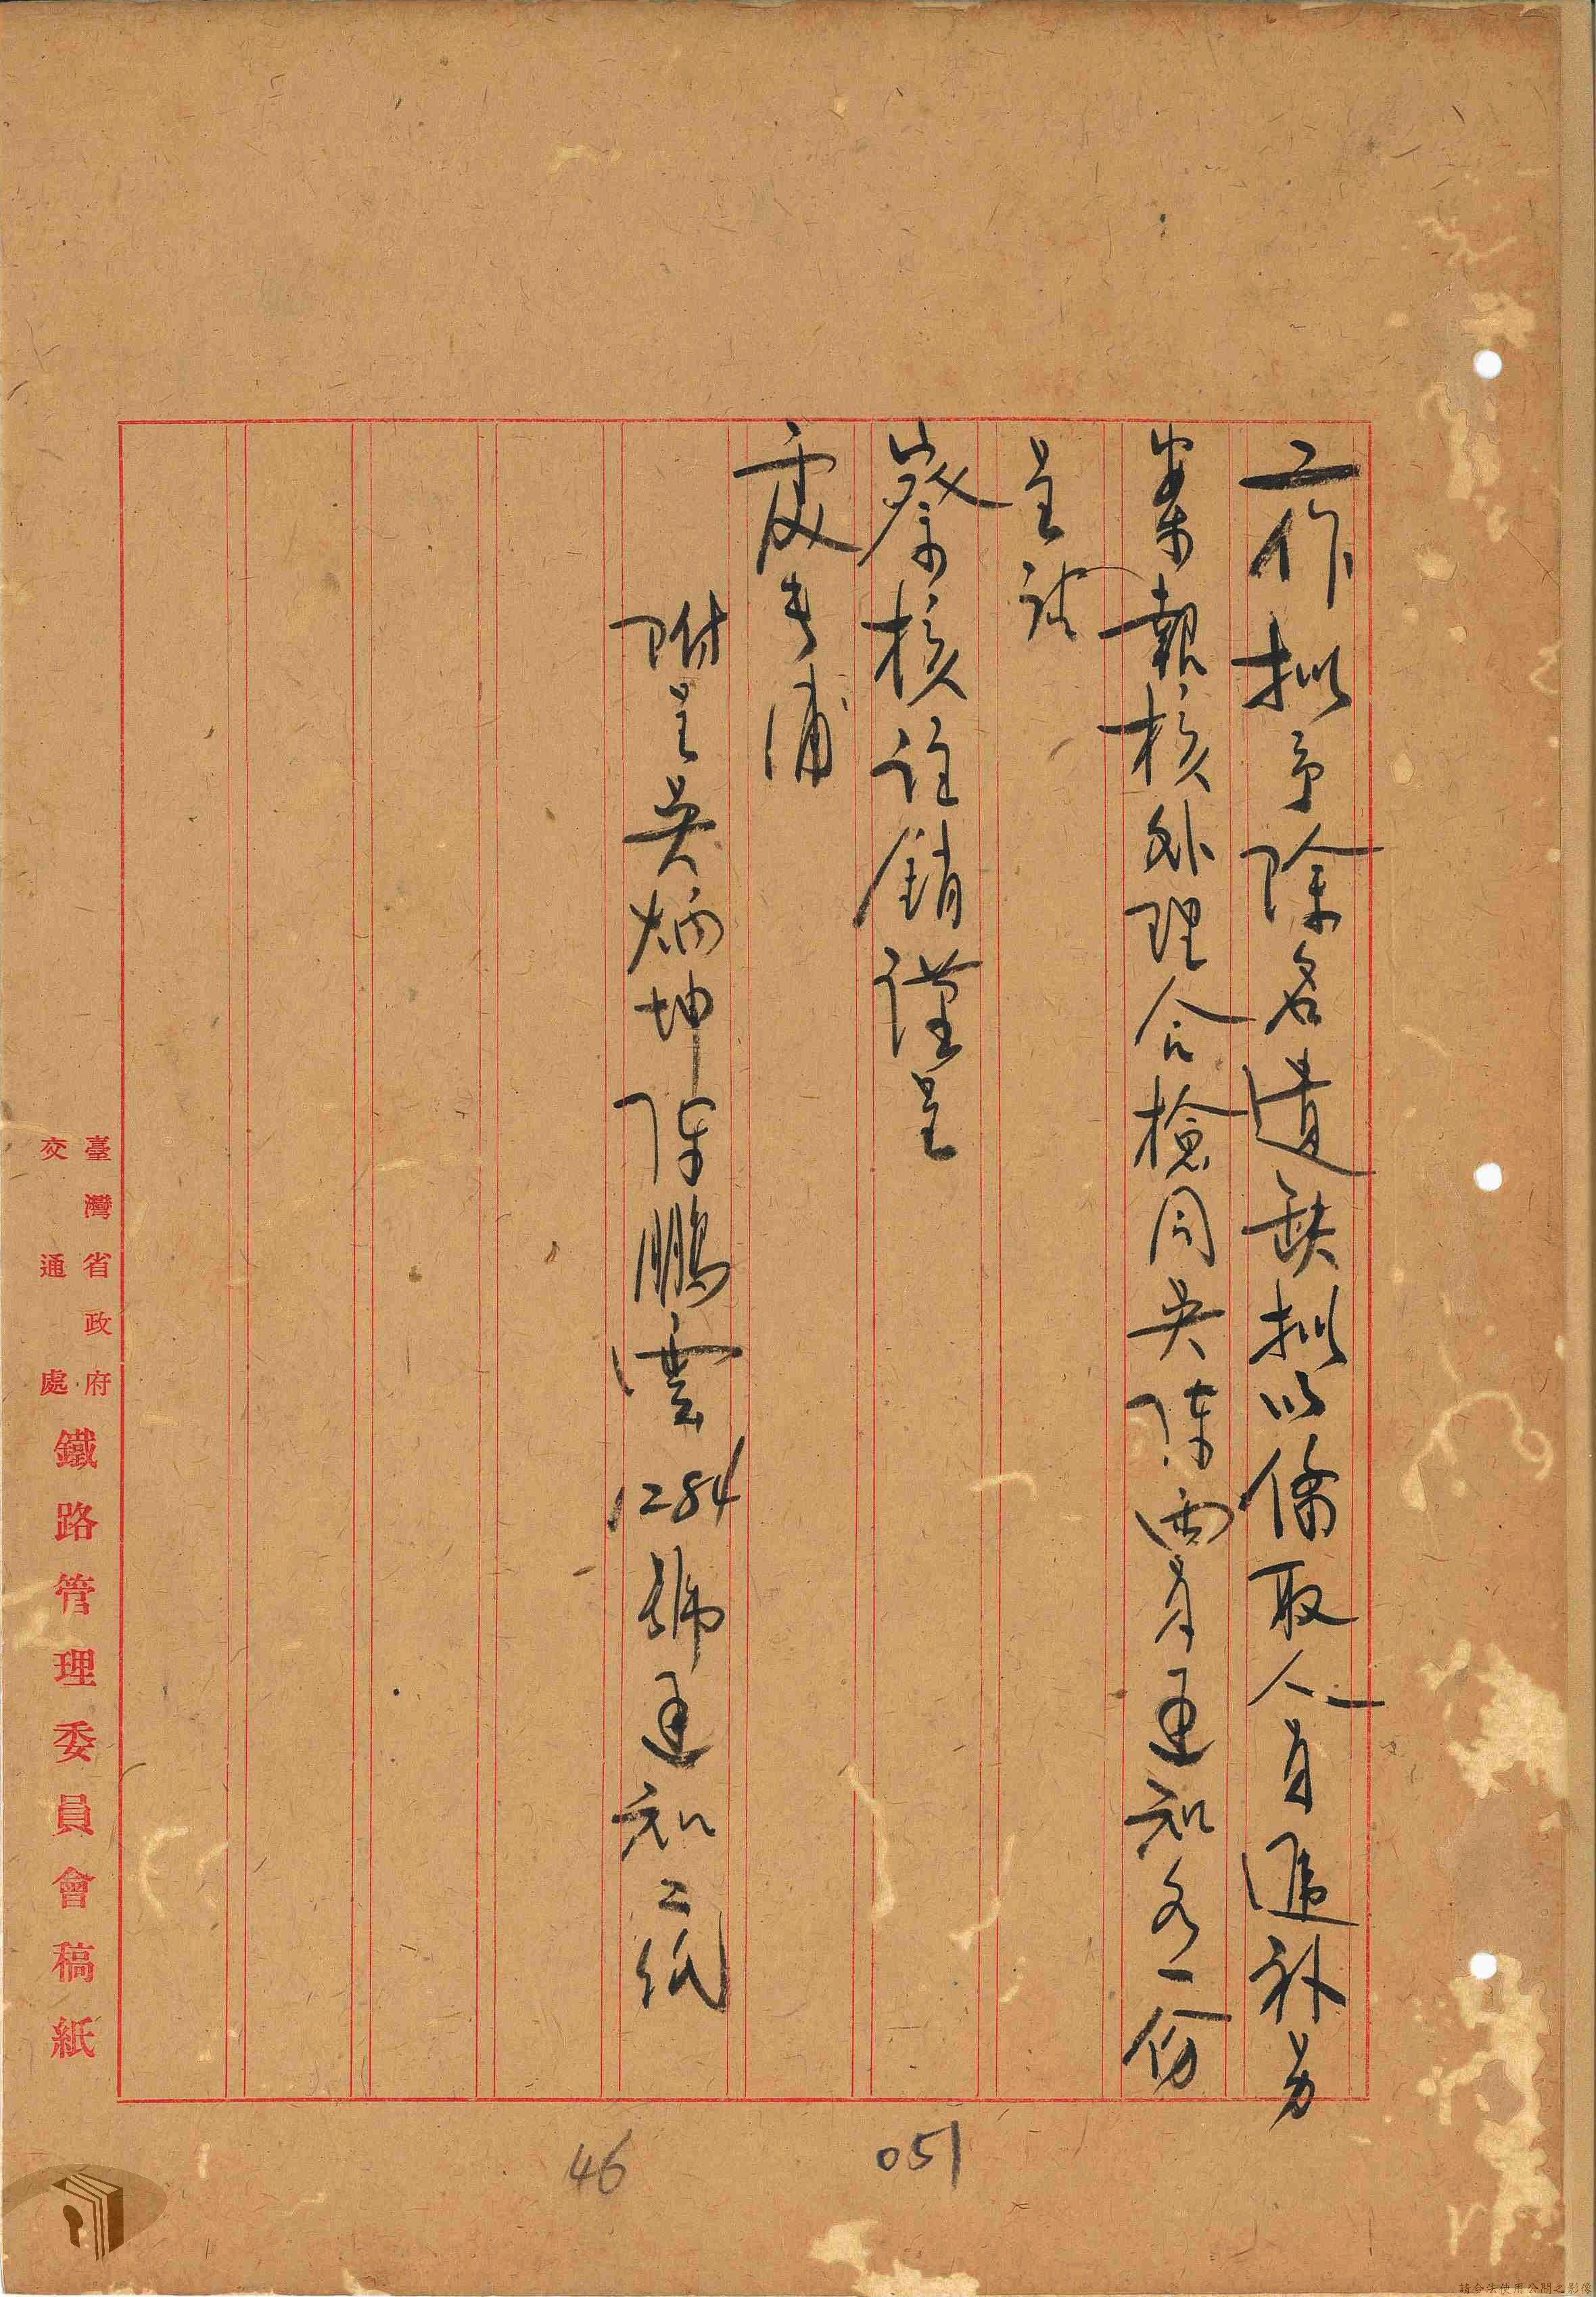 工作擬予除名遺缺擬以備取人員遞補另
案報核外理合檢同吳陳兩員通知各一份
呈請
詧核註銷謹呈
處長浦
附呈吳炳坤陳鵬雲1284號通知二紙
臺灣省政府
交通處
鐵路管理委員會稿紙
051
46
請合法使用公開之影像